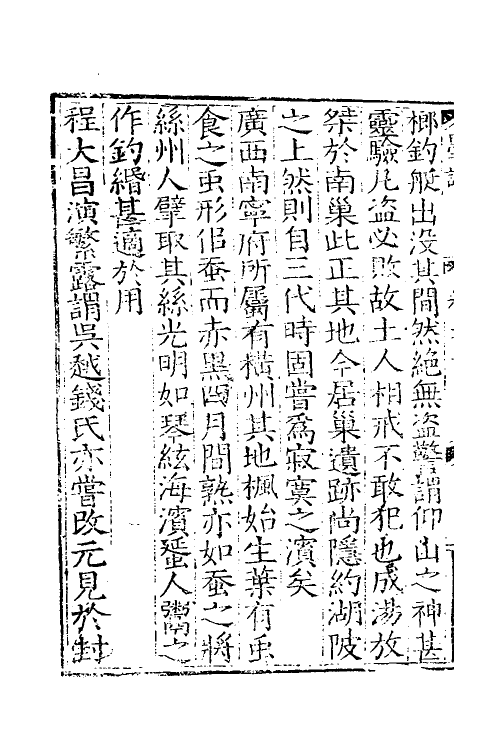 榔釣艇出没其間然絶無盗警謂仰山之神甚
靈驗凡盗必敗故土人相戒不敢犯也成湯放
桀於南巢此正其地今居巢遺跡尚隱約湖陂
之上然則自三代時固嘗爲寂寞之濱矣
廣西南寧府所屬有横州其地楓始生葉有虫
食之虫形佀蚕而赤黒四月間熟亦如蚕之將
絲州人擘取其絲光明如琴絃海濱蜑人鬻之
作釣緡甚適於用
程大昌演繁露謂吳越錢氏亦嘗改元見於封